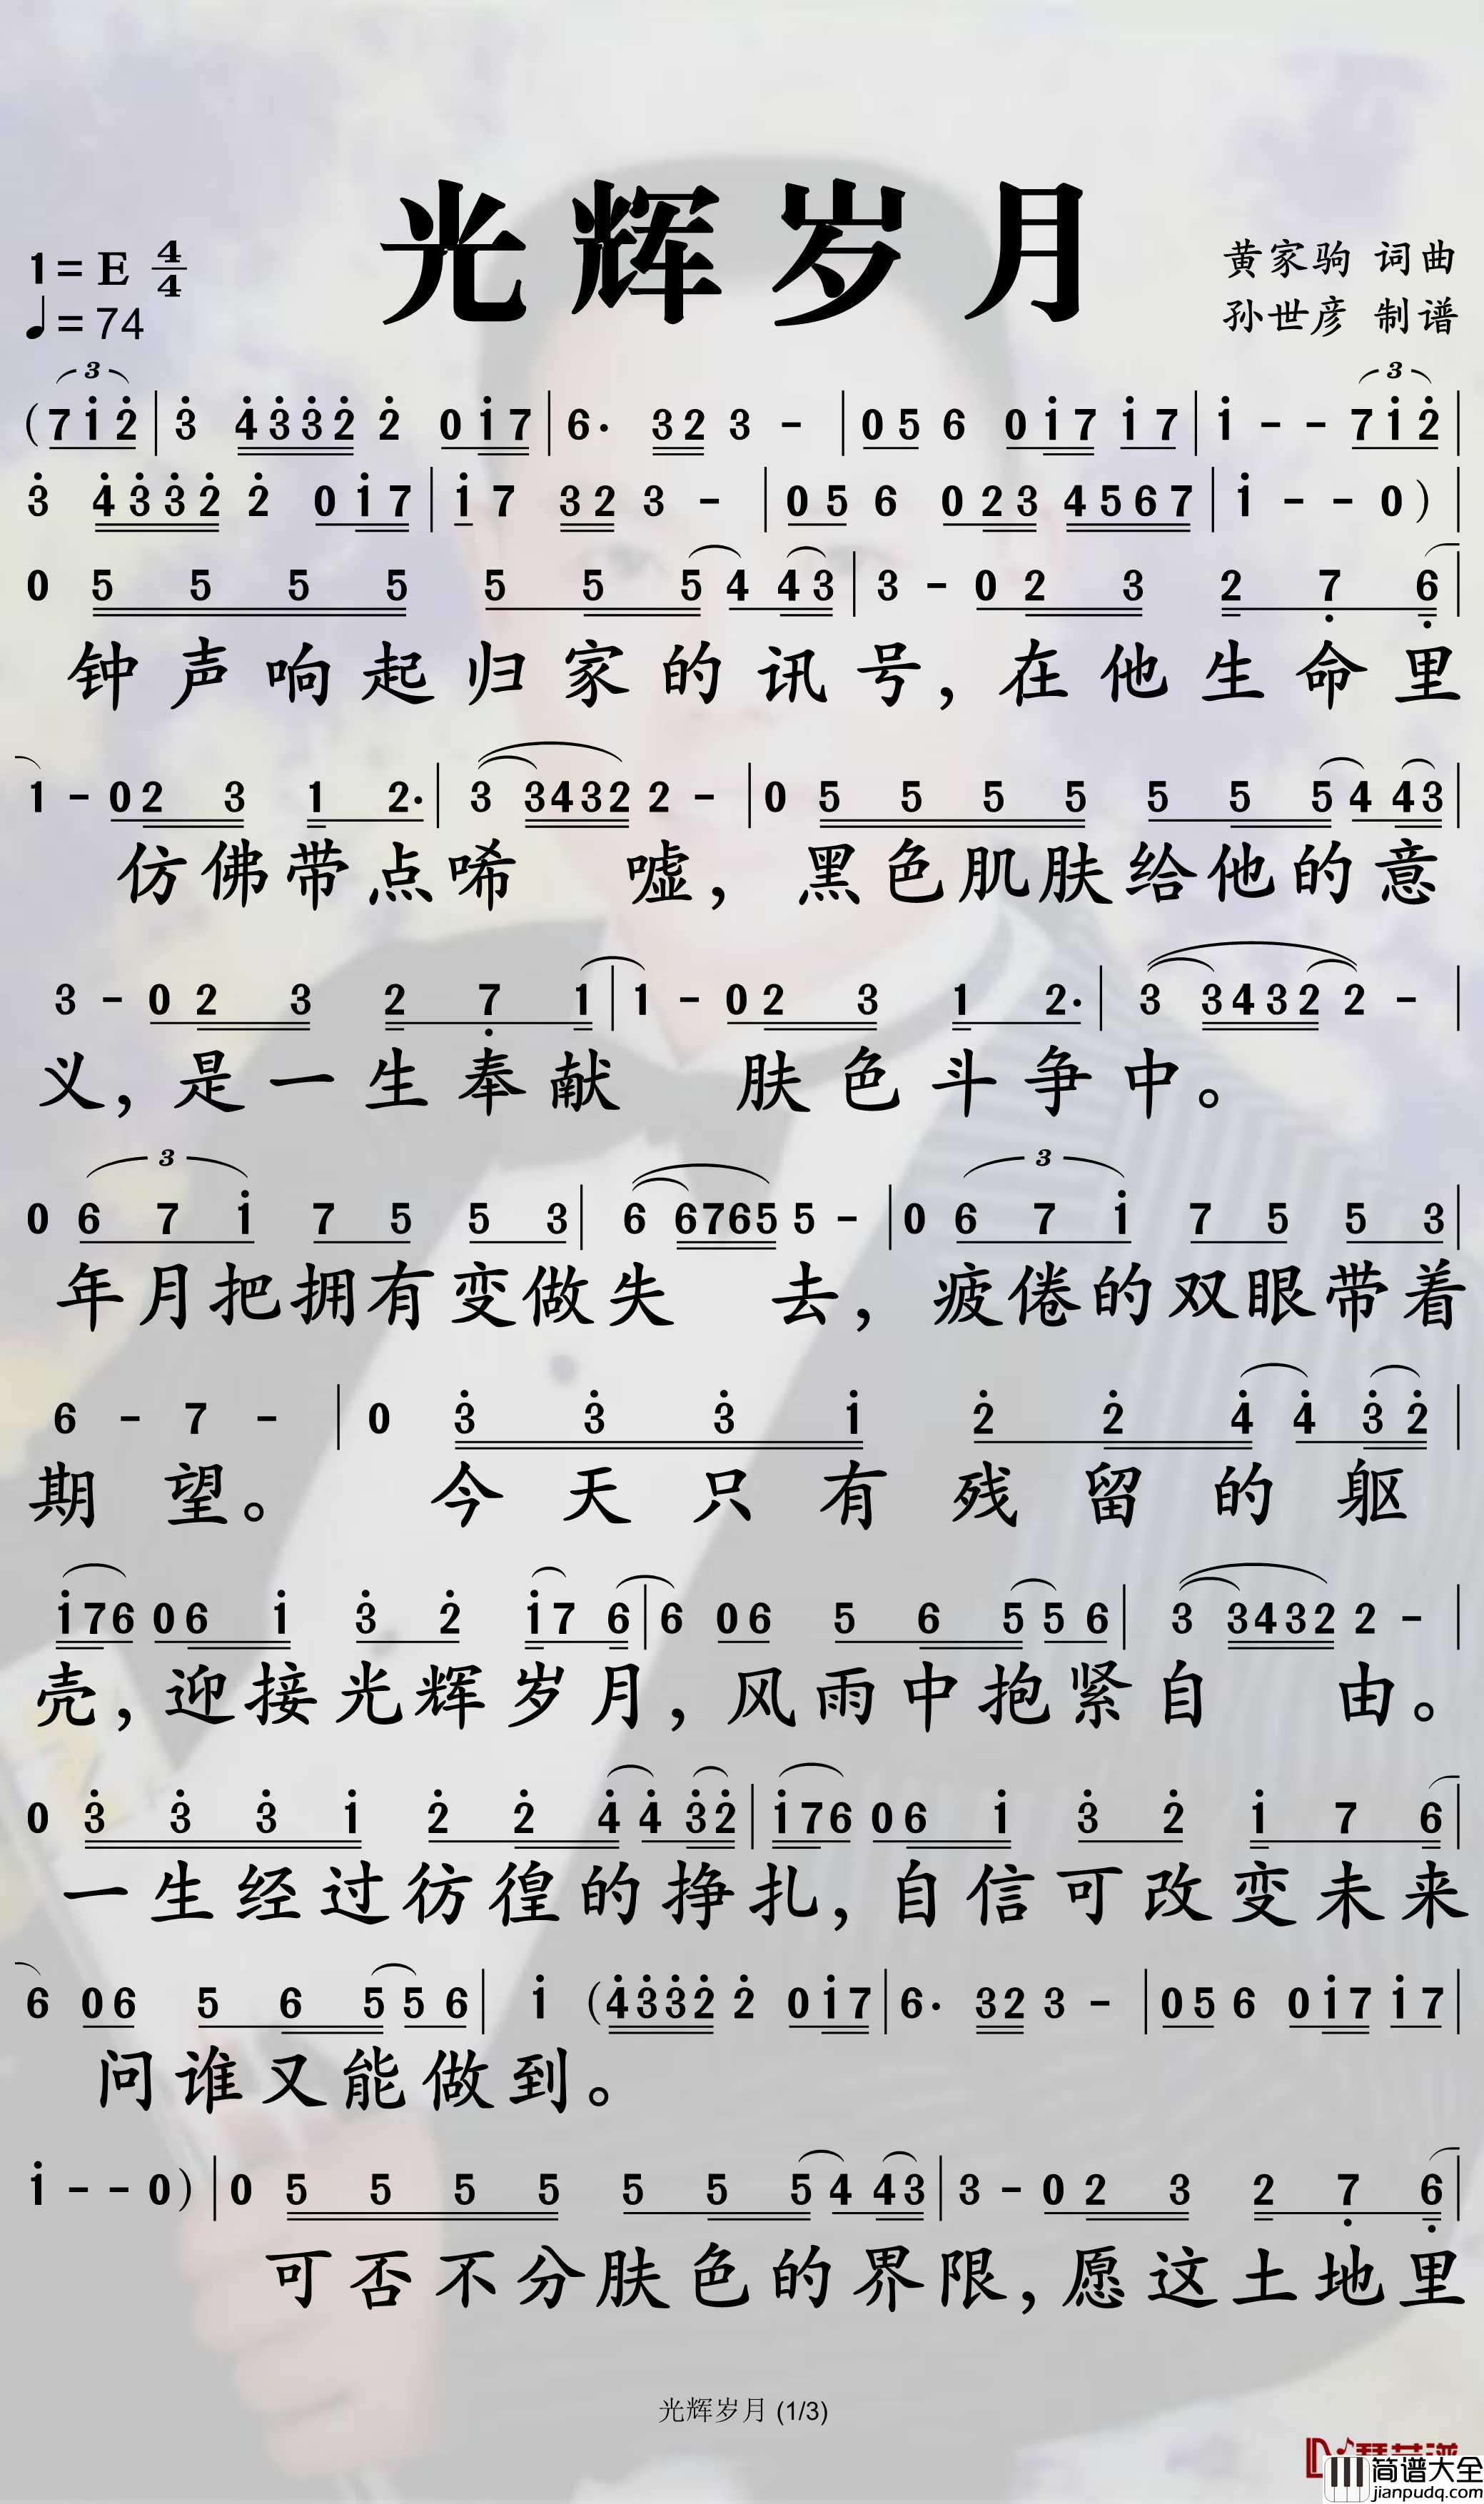 光辉岁月
1=E 4/4
♩=74
黄家驹 词曲
孙世彦 制谱
(7 1̇ 2̇ | 3̇ 4̇ 3̇ 3̇ 2̇ 2̇ 0 1̇ 7 | 6· 3 2 3 - | 0 5 6 0 1̇ 7 1̇ 7 | 1̇ - - 7 1̇ 2̇ |
3̇ 4̇ 3̇ 3̇ 2̇ 2̇ 0 1̇ 7 | 1̇ 7 3 2 3 - | 0 5 6 0 2 3 4 5 6 7 | 1̇ - - 0 ) |
0 5 5 5 5 5 5 5 4 4 3 | 3 - 0 2 3 2 7̣ 6̣ |
钟声响起归家的讯号，在他生命里
1 - 0 2 3 1 2· | 3 3 4 3 2 2 - | 0 5 5 5 5 5 5 5 4 4 3 |
仿佛带点唏 嘘，黑色肌肤给他的意
3 - 0 2 3 2 7̣ 1 | 1 - 0 2 3 1 2· | 3 3 4 3 2 2 - |
义，是一生奉献 肤色斗争中。
0 6 7 1̇ 7 5 5 3 | 6 6 7 6 5 5 - | 0 6 7 1̇ 7 5 5 3 |
年月把拥有变做失 去，疲倦的双眼带着
6 - 7 - | 0 3̇ 3̇ 3̇ 1̇ 2̇ 2̇ 4̇ 4̇ 3̇ 2̇ |
期 望。 今天只有残留的躯
1̇ 7 6 0 6 1̇ 3̇ 2̇ 1̇ 7 6 | 6 0 6 5 6 5 5 6 | 3 3 4 3 2 2 - |
壳，迎接光辉岁月，风雨中抱紧自 由。
0 3̇ 3̇ 3̇ 1̇ 2̇ 2̇ 4̇ 4̇ 3̇ 2̇ | 1̇ 7 6 0 6 1̇ 3̇ 2̇ 1̇ 7 6 |
一生经过彷徨的挣扎，自信可改变未来
6 0 6 5 6 5 5 6 | 1̇ (4̇ 3̇ 3̇ 2̇ 2̇ 0 1̇ 7 | 6· 3 2 3 - | 0 5 6 0 1̇ 7 1̇ 7 |
问谁又能做到。
1̇ - - 0 ) | 0 5 5 5 5 5 5 5 4 4 3 | 3 - 0 2 3 2 7̣ 6̣ |
可否不分肤色的界限，愿这土地里
光辉岁月 (1/3)
简谱大全
jianpudq.com